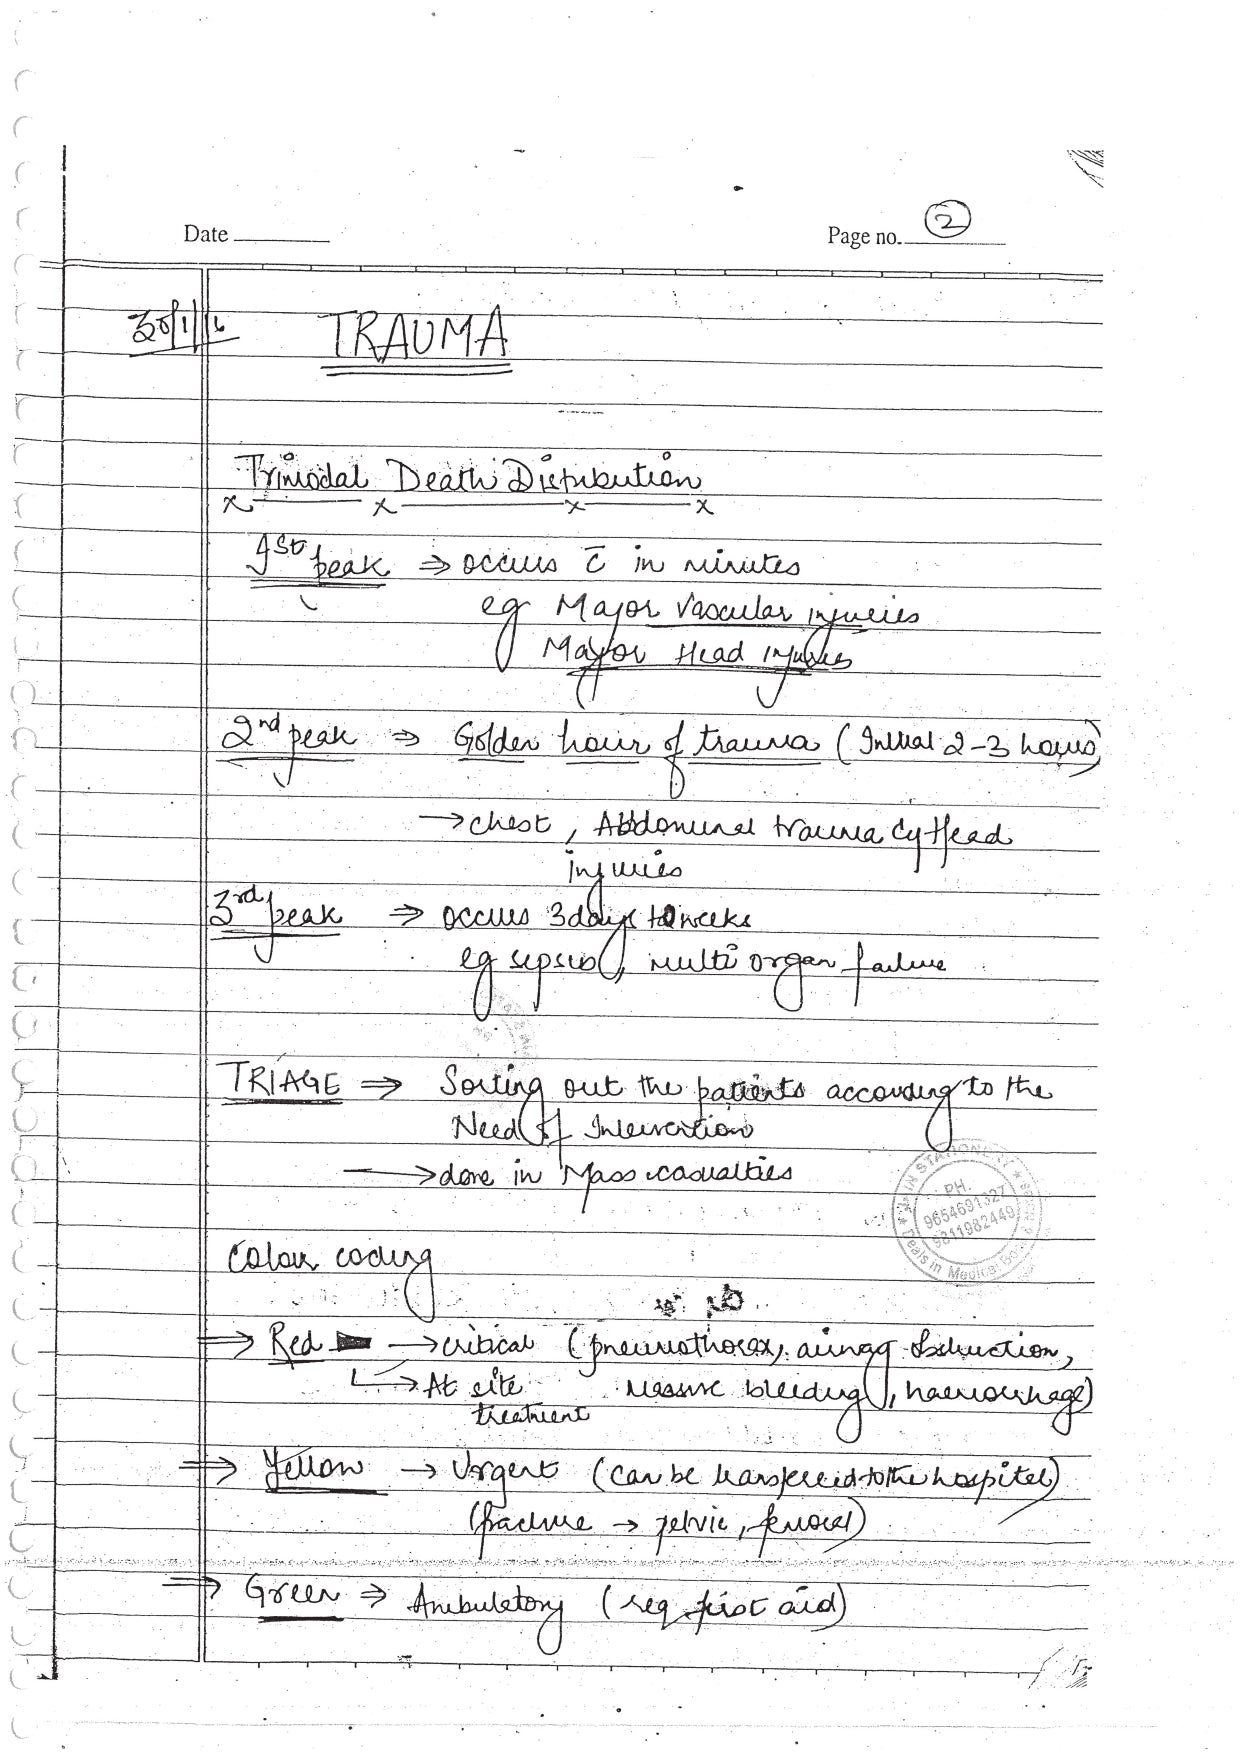 Date
Page no. 2
30/1/16
TRAUMA
Trimodal Death Distribution
1st peak ⇒ occurs c̄ in minutes
eg Major vascular injuries
Major Head injuries
2nd peak ⇒ Golden hour of trauma (Initial 2-3 hours)
→ chest, Abdominal trauma Head
injuries
3rd peak ⇒ occurs 3 days to weeks
eg sepsis, multi organ failure
TRIAGE ⇒ Sorting out the patients according to the
Need of Intervention
→ done in Mass casualties
IN STATIONERY
PH.
9654691327
9811982449
Deals in Medical
Colour coding
⇒ Red → critical (pneumothorax, airway obstruction,
→ At site massive bleeding, haemorrhage)
treatment
⇒ Yellow → Urgent (can be transferred to the hospital)
(fracture → pelvic, femoral)
⇒ Green ⇒ Ambulatory (req first aid)